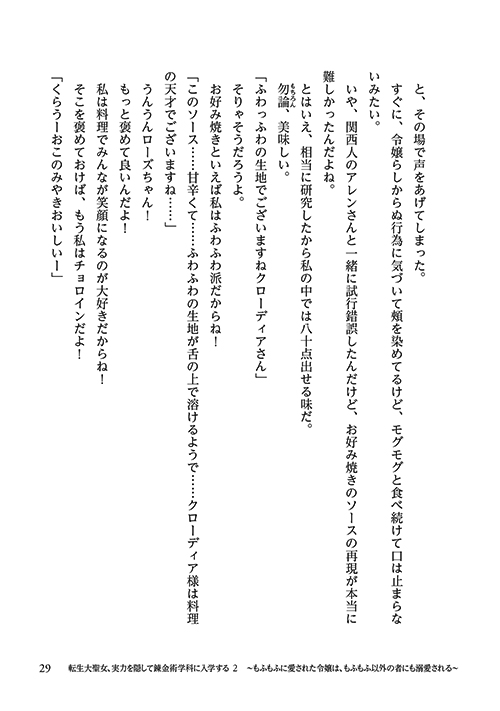 と、その場で声をあげてしまった。
すぐに、令嬢らしからぬ行為に気づいて頬を染めてるけど、モグモグと食べ続けて口は止まらな
いみたい。
いや、関西人のアレンさんと一緒に試行錯誤したんだけど、お好み焼きのソースの再現が本当に
難しかったんだよね。
とはいえ、相当に研究したから私の中では八十点出せる味だ。
勿論、美味しい。
もちろん
「ふわっふわの生地でございますねクローディアさん」
そりゃそうだろうよ。
お好み焼きといえば私はふわふわ派だからね!
「このソース……甘辛くて……ふわふわの生地が舌の上で溶けるようで……クローディア様は料理
の天才でございますね……」
うんうんローズちゃん!
もっと褒めて良いんだよ!
私は料理でみんなが笑顔になるのが大好きだからね!
そこを褒めておけば、もう私はチョロインだよ!
「くらうーおこのみやきおいしいー」
29 転生大聖女、実力を隠して錬金術学科に入学する 2 ~もふもふに愛された令嬢は、もふもふ以外の者にも溺愛される~